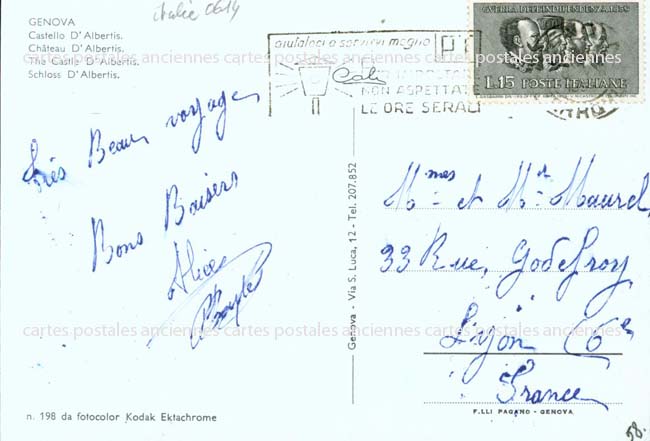 italie 0614
GENOVA
Castello D'Albertis.
Château D'Albertis.
The Castle D'Albertis.
Schloss D'Albertis.
aiutateci a servirvi meglio
NON ASPETTATE
LE ORE SERALI
GUERRA DELL'INDIPENDENZA 1859
L.15 POSTE ITALIANE
Très Beau voyage
Bons Baisers
Alice
Mmes et Mr Maurel
33 Rue, Godefroy
Lyon (6e
France
Genova - Via S. Luca, 12 - Tel. 207.852
cartes postales anciennes cartes postales anciennes cartes postales anciennes
cartes postales anciennes cartes postales anciennes cartes postales anciennes
n. 198 da fotocolor Kodak Ektachrome
F.LLI PAGANO - GENOVA
58.